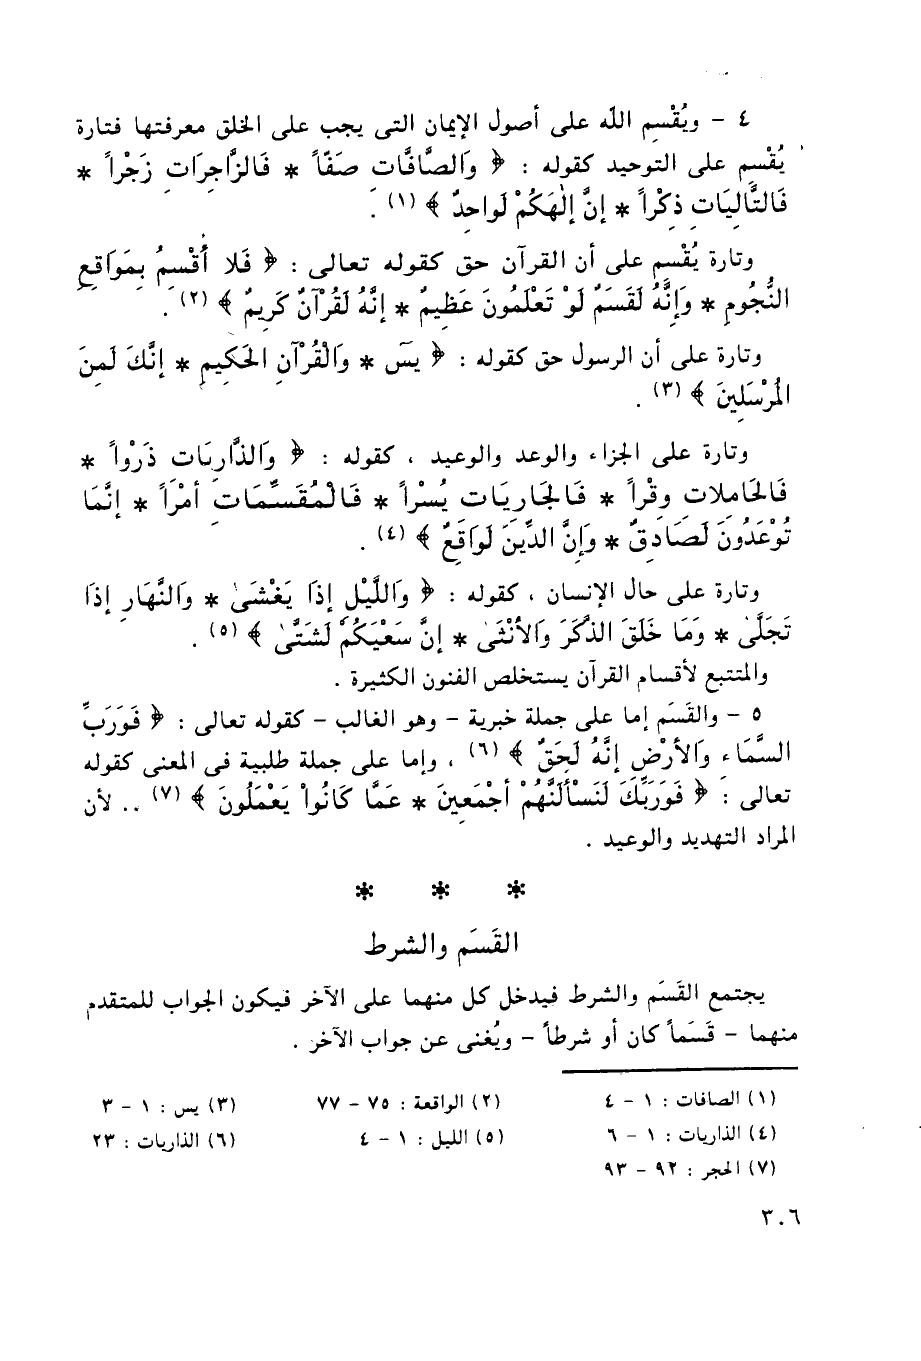 ٤ - ويُقْسِم الله على أصول الإيمان التى يجب على الخلق معرفتها فتارة
يُقْسِم على التوحيد كقوله : ﴿ وَالصَّافَّات صَفّاً * فَالزَّاجِرَات زَجْراً *
فَالتَّالِيَات ذِكْراً * إِنَّ إِلَٰهَكُمْ لَوَاحِدٌ ﴾ (١) .
وتارة يُقْسِم على أن القرآن حق كقوله تعالى : ﴿ فَلَا أُقْسِمُ بِمَوَاقِعِ
النُّجُومِ * وَإِنَّهُ لَقَسَمٌ لَوْ تَعْلَمُونَ عَظِيمٌ * إِنَّهُ لَقُرْآنٌ كَرِيمٌ ﴾ (٢) .
وتارة على أن الرسول حق كقوله : ﴿ يسَ * وَالْقُرْآنِ الحَكِيمِ * إِنَّكَ لَمِنَ
المُرْسَلِينَ ﴾ (٣) .
وتارة على الجزاء والوعد والوعيد ، كقوله : ﴿ وَالذَّارِيَات ذَرْواً *
فَالحَامِلات وِقْراً * فَالجَارِيَات يُسْراً * فَالْمُقَسِّمَات أَمْراً * إِنَّمَا
تُوعَدُونَ لَصَادِقٌ * وَإِنَّ الدِّينَ لَوَاقِعٌ ﴾ (٤) .
وتارة على حال الإنسان ، كقوله : ﴿ وَاللَّيْلِ إِذَا يَغْشَىٰ * وَالنَّهَارِ إِذَا
تَجَلَّىٰ * وَمَا خَلَقَ الذَّكَرَ وَالأُنْثَىٰ * إِنَّ سَعْيَكُمْ لَشَتَّىٰ ﴾ (٥) .
والمتتبع لأقسام القرآن يستخلص الفنون الكثيرة .
٥ - والقَسَم إما على جملة خبرية - وهو الغالب - كقوله تعالى : ﴿ فَوَرَبِّ
السَّمَاءِ وَالأَرْضِ إِنَّهُ لَحَقٌّ ﴾ (٦) ، وإما على جملة طلبية فى المعنى كقوله
تعالى : ﴿ فَوَرَبِّكَ لَنَسْأَلَنَّهُمْ أَجْمَعِينَ * عَمَّا كَانُوا يَعْمَلُونَ ﴾ (٧) .. لأن
المراد التهديد والوعيد .
* * *
القَسَم والشرط
يجتمع القَسَم والشرط فيدخل كل منهما على الآخر فيكون الجواب للمتقدم
منهما - قَسَماً كان أو شرطاً - ويُغنى عن جواب الآخر .
(١) الصافات : ١ - ٤ (٢) الواقعة : ٧٥ - ٧٧ (٣) يس : ١ - ٣
(٤) الذاريات : ١ - ٦ (٥) الليل : ١ - ٤ (٦) الذاريات : ٢٣
(٧) الحجر : ٩٢ - ٩٣
٣٠٦